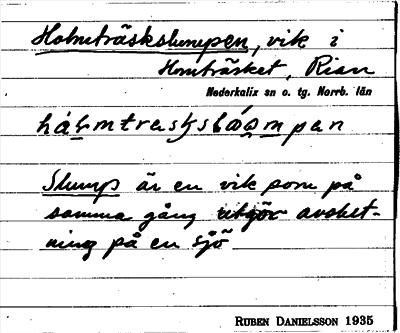 Holmträskslumpen, vik i
Holmträsket, Rian
Nederkalix sn o. tg. Norrb. län
Slump är en vik som på
samma gång utgör avslut-
ning på en sjö
RUBEN DANIELSSON 1935